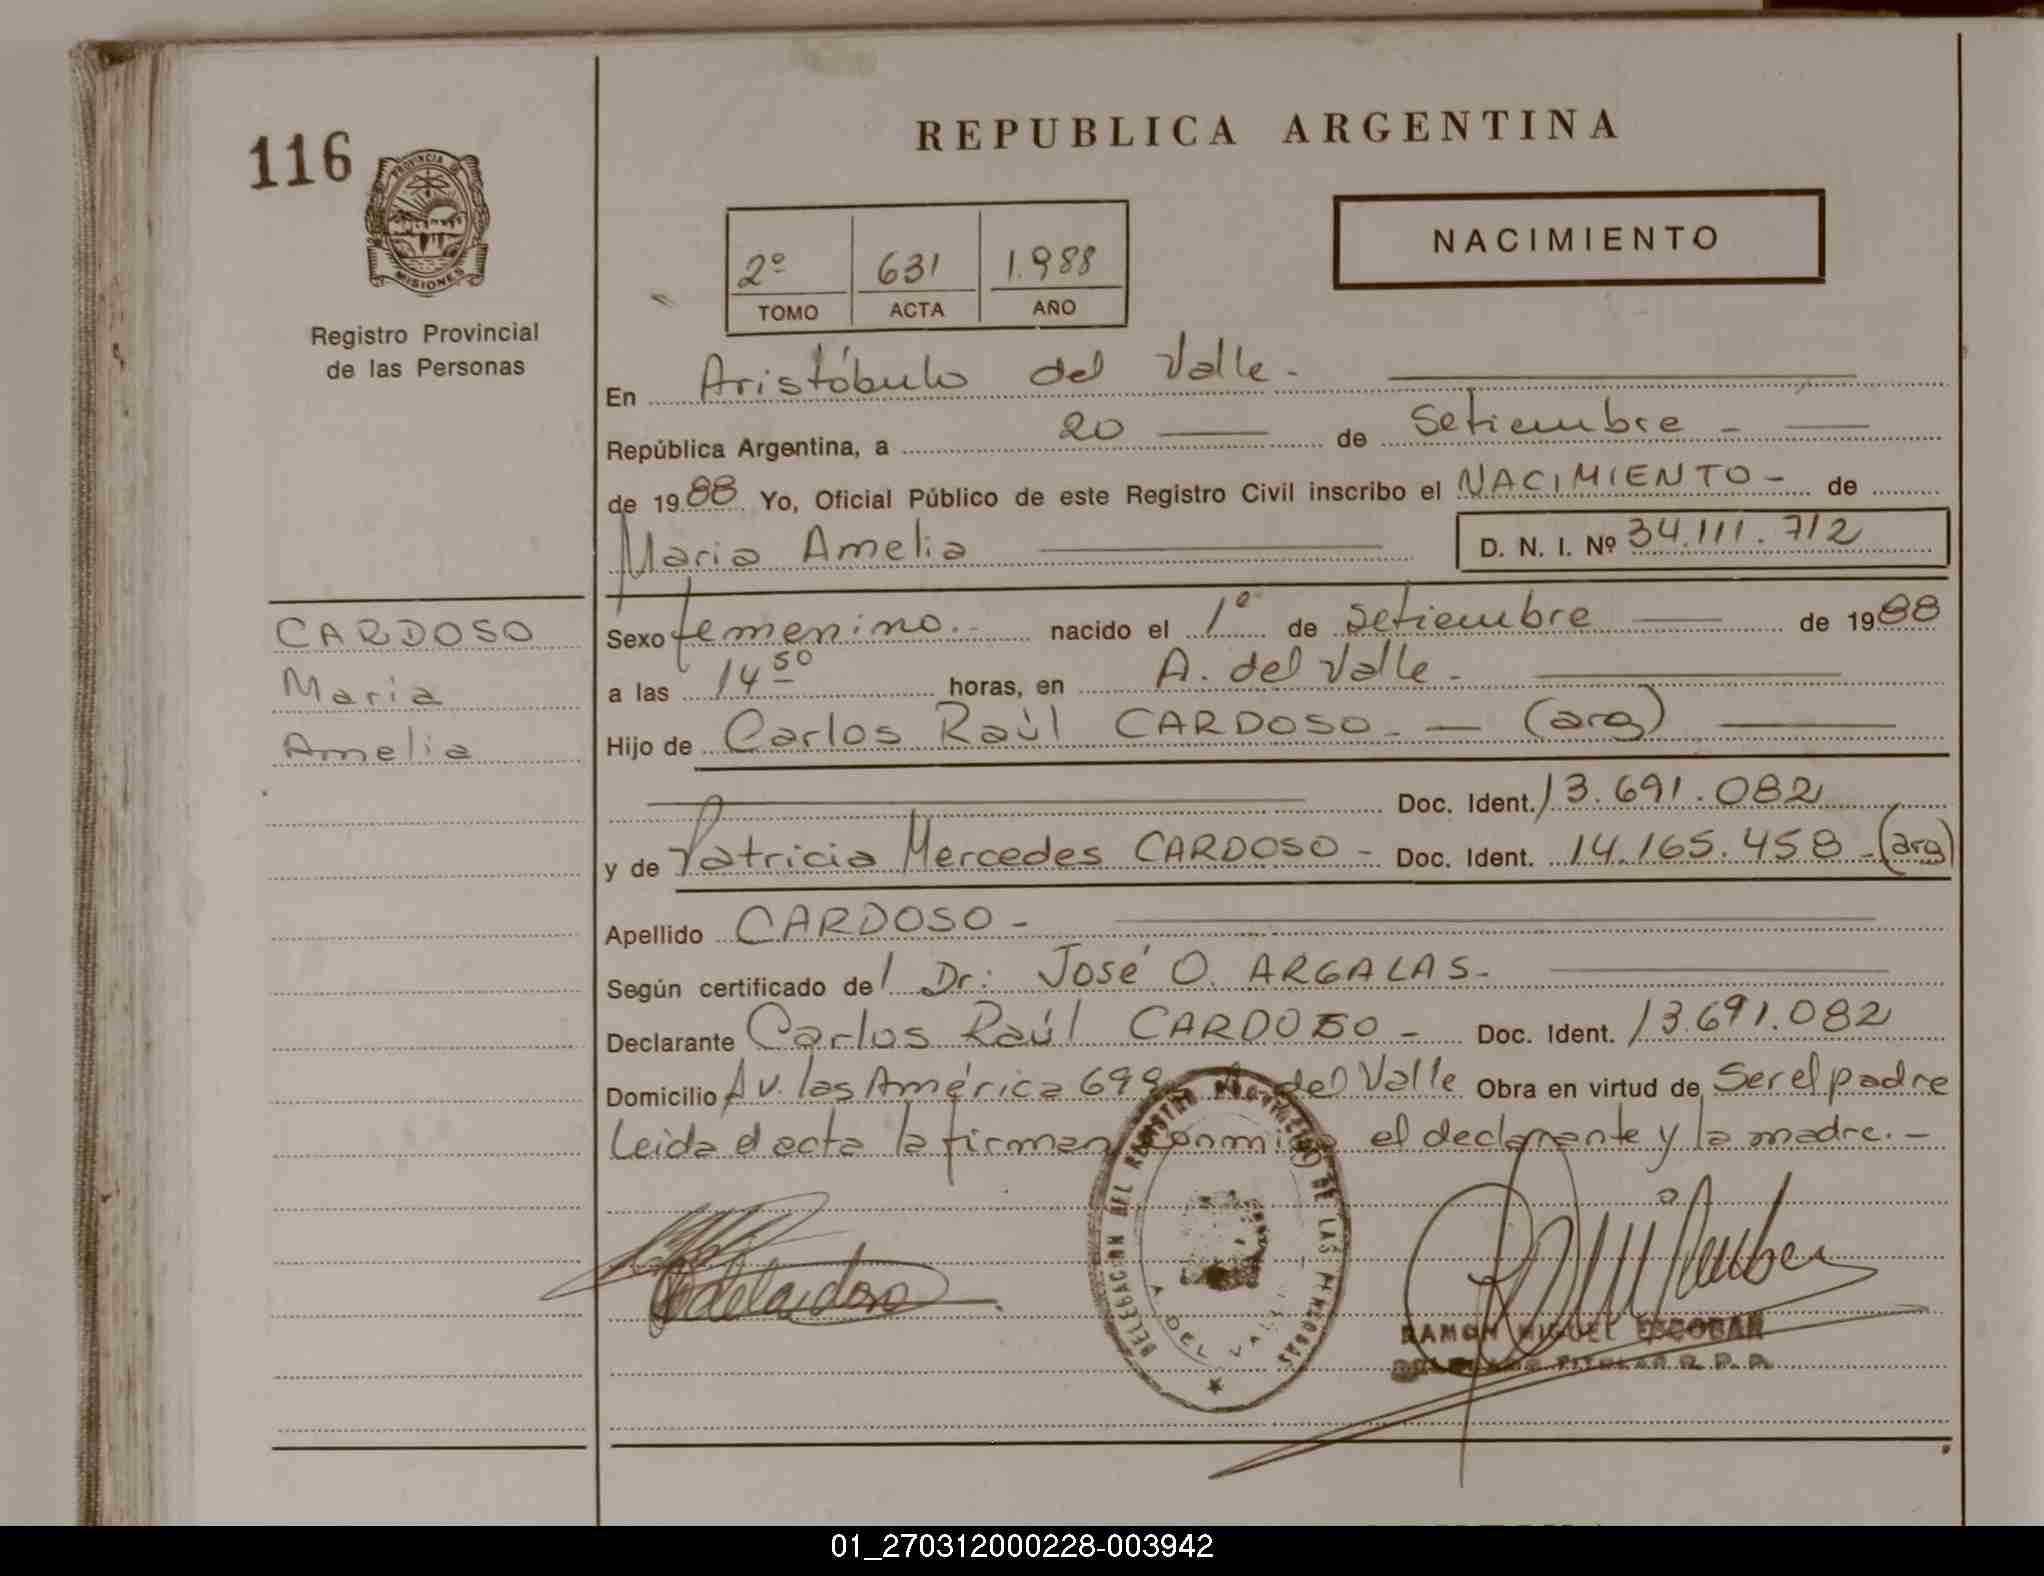 REPUBLICA ARGENTINA
116
PROVINCIA DE
MISIONES
NACIMIENTO
2º 631 1.988
TOMO ACTA AÑO
Registro Provincial
de las Personas
En Aristóbulo del Valle.
República Argentina, a 20 de Setiembre
de 1988 Yo, Oficial Público de este Registro Civil inscribo el NACIMIENTO de
Maria Amelia D. N. I. Nº 34.111.712
CARDOSO
María
Amelia
Sexo femenino. nacido el 1º de Setiembre de 1988
a las 14 50 horas, en A. del Valle.
Hijo de Carlos Raúl CARDOSO (arg)
Doc. Ident. 13.691.082
y de Patricia Mercedes CARDOSO - Doc. Ident. 14.165.458 - (arg)
Apellido CARDOSO -
Según certificado del Dr: José O. ARGALAS.
Declarante Carlos Raúl CARDOSO - Doc. Ident. 13.691.082
Domicilio Av. las América 699 A del Valle Obra en virtud de Ser el padre
Leida el acta la firman conmigo el declarante y la madre. -
DELEGACION DEL REGISTRO PROVINCIAL DE LAS PERSONAS
A. DEL VALLE
RAMON MIGUEL ESCOBAR
DELEGADO TITULAR R. P. P.
01_270312000228-003942